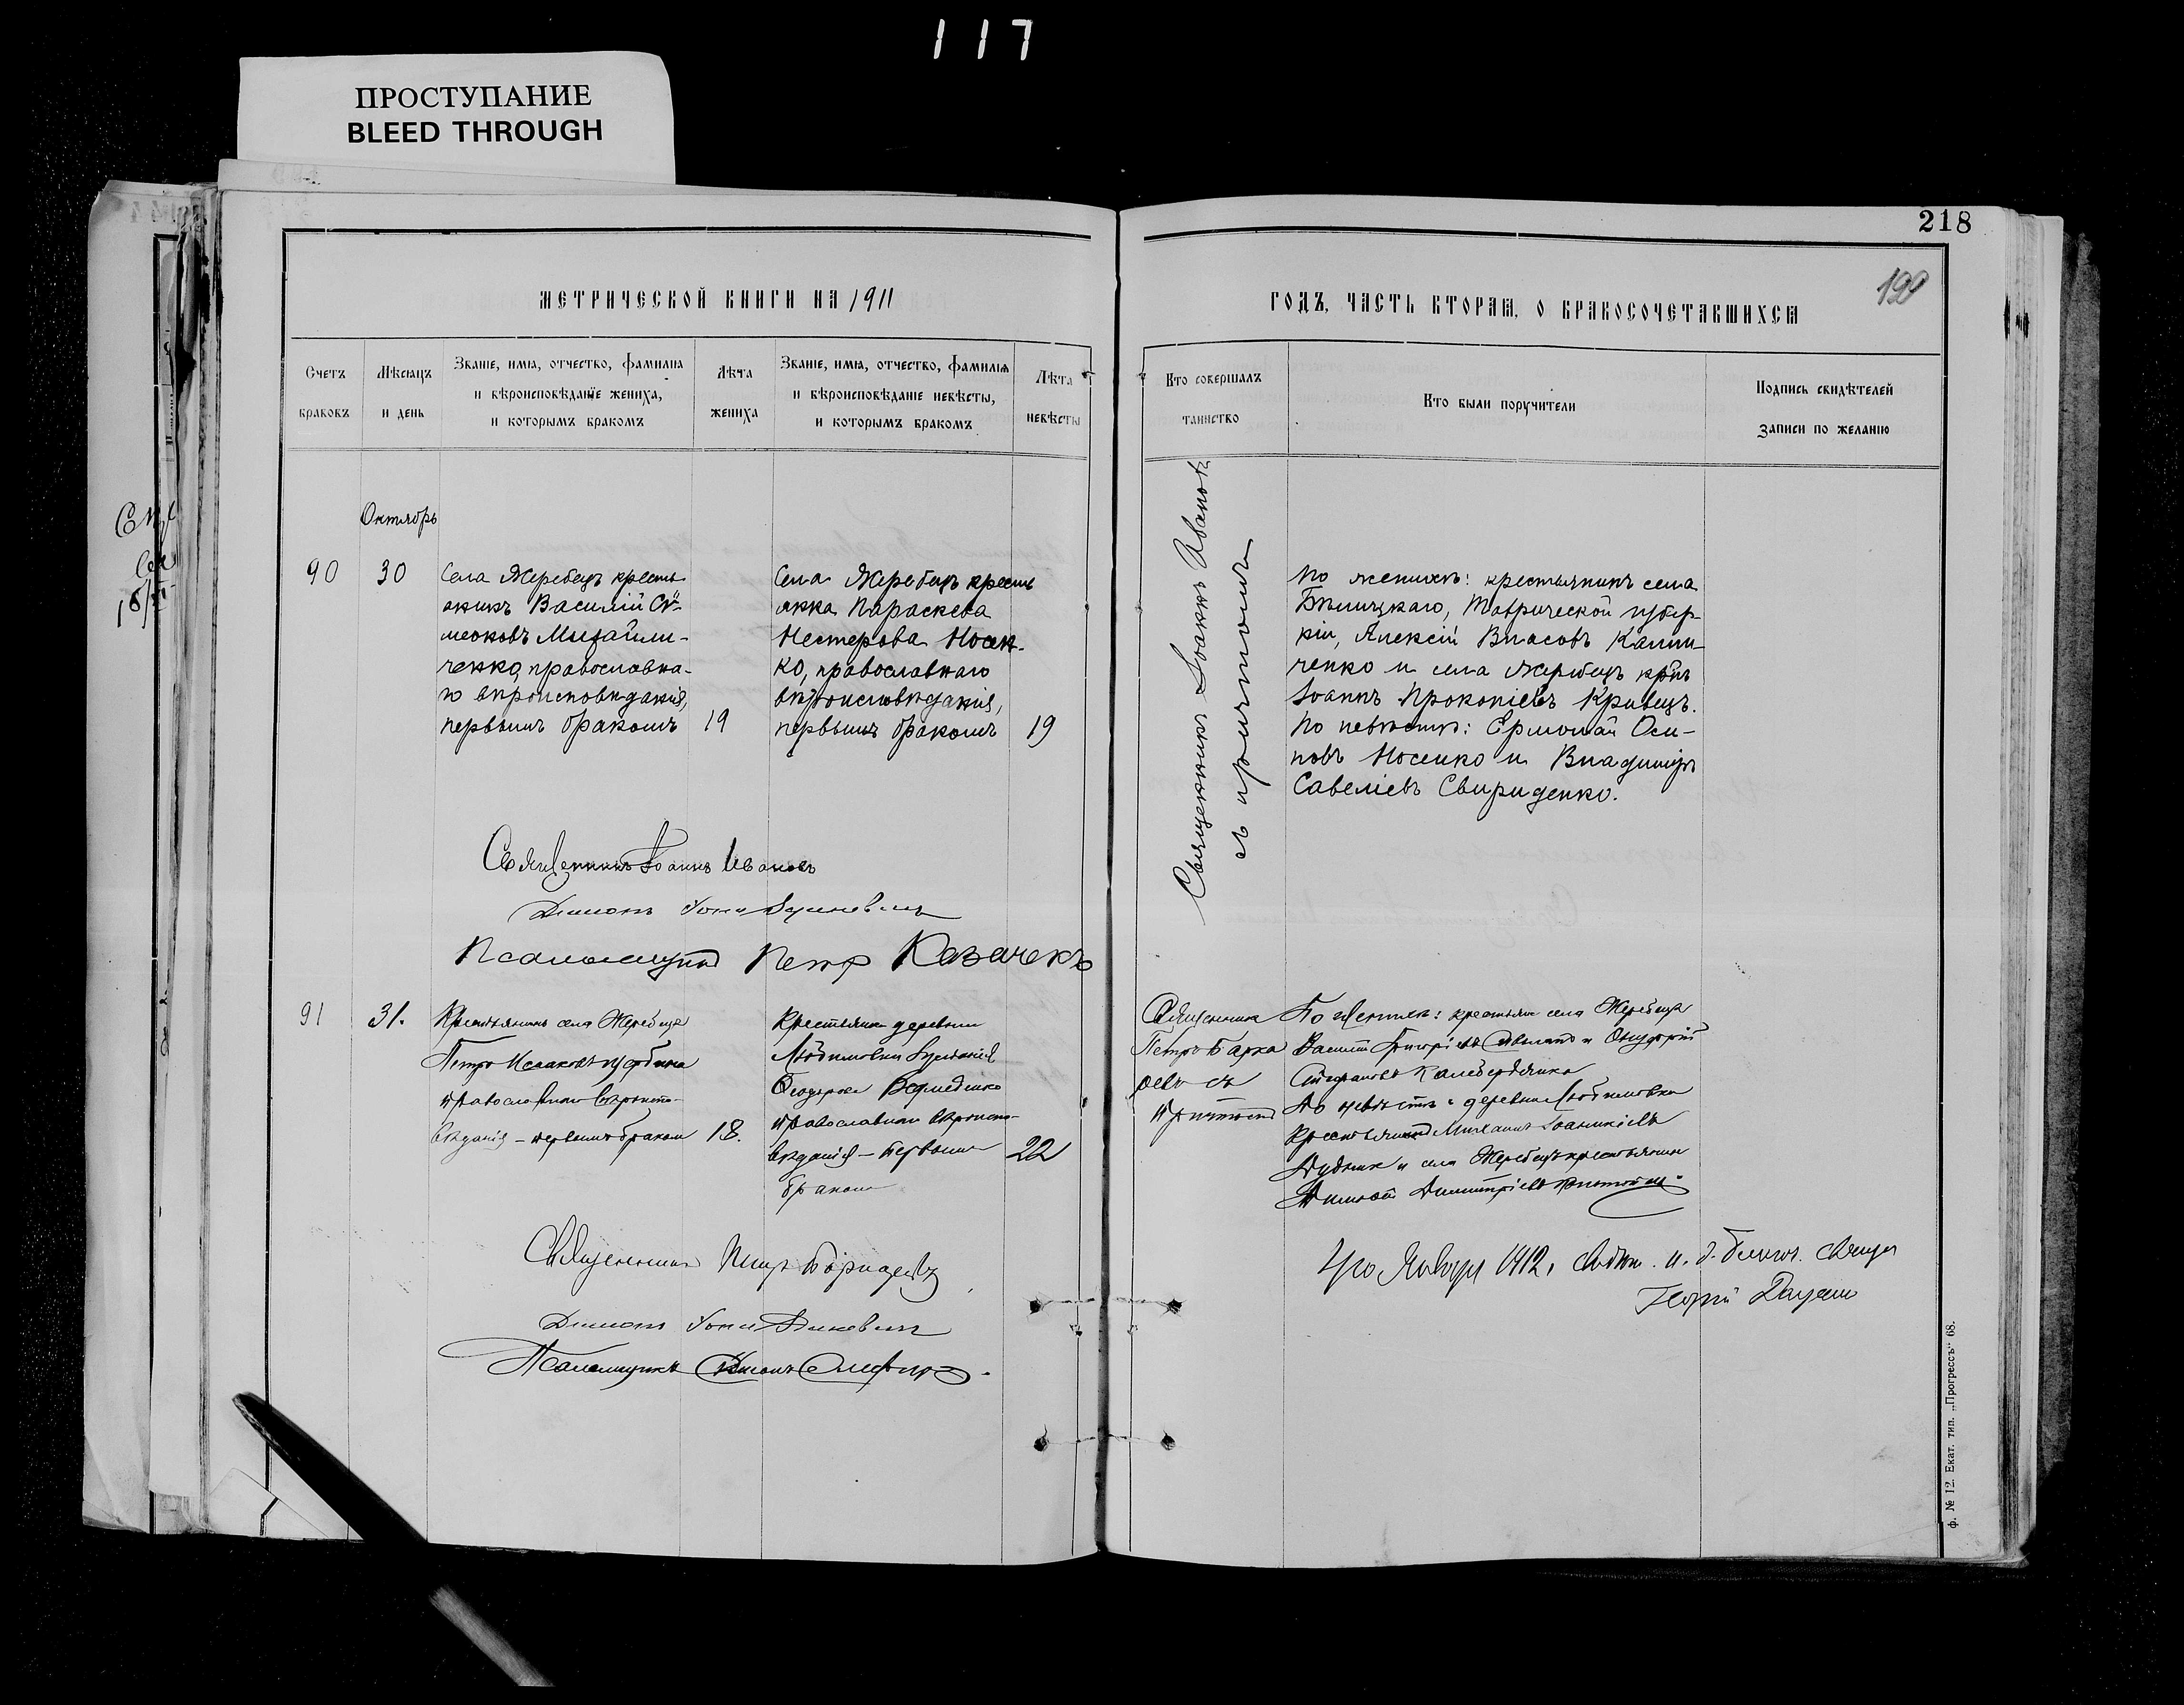 117
ПРОСТУПАНИЕ
BLEED THROUGH
218
190
МЕТРИЧЕСКОЙ КНИГИ НА 1911
ГОДЪ, ЧАСТЬ ВТОРАЯ, О БРАКОСОЧЕТАВШИХСЯ
Счетъ
браковъ
Мѣсяцъ
и день
Званіе, имя, отчество, фамилія
и вѣроисповѣданіе жениха,
и которымъ бракомъ
Лѣта
жениха
Званіе, имя, отчество, фамилія
и вѣроисповѣданіе невѣсты,
и которымъ бракомъ
Лѣта
невѣсты
Кто совершалъ
таинство
Кто были поручители
Подпись свидѣтелей
записи по желанію
Октябрь
90
30
Села Жеребецъ кресть
янинъ Василій Си-
меоновъ Михайли-
ченко, православна-
го вѣроисповѣданія,
первымъ бракомъ
19
Села Жеребецъ кресть
янка Параскева
Нестерова Носен-
ко, православнаго
вѣроисповѣданія,
первымъ бракомъ
19
Священникъ Іоаннъ Ивановъ
съ причтомъ
По женихѣ: крестьянинъ села
Бѣлицкаго, Таврической губер-
ніи, Алексій Власовъ Калини-
ченко и села Жеребецъ кр-нъ
Іоаннъ Прокопіевъ Кривецъ.
По невѣстѣ: Ермолай Оси-
повъ Носенко и Владиміръ
Савеліевъ Свириденко.
Священникъ Іоаннъ Ивановъ
Діаконъ
Псаломщикъ Петр Козачекъ
91
31.
Крестьянинъ села Жеребца
Петръ
православнаго вѣроиспо-
вѣданія – первымъ бракомъ
18.
Крестьянка деревни
Любимовки
Ѳеодорова Ведмеденко
православнаго вѣроиспо-
вѣданія – первымъ
бракомъ
22
Священникъ
Петръ
съ
причтомъ
По женихѣ: крестьяне села Жеребца
Василій Григорієвъ и Онуфрій
Стефановъ
По невѣстѣ: деревни Любимовки
крестьянинъ Михаилъ Іоанникіевъ
Дудник и села Жеребецъ крестьянинъ
Димитріевъ
Священникъ Петръ
Діаконъ
Псаломщикъ
Января 1912,
Георгій
ф. № 12. Екат. тип. „Прогрессъ“ 68.